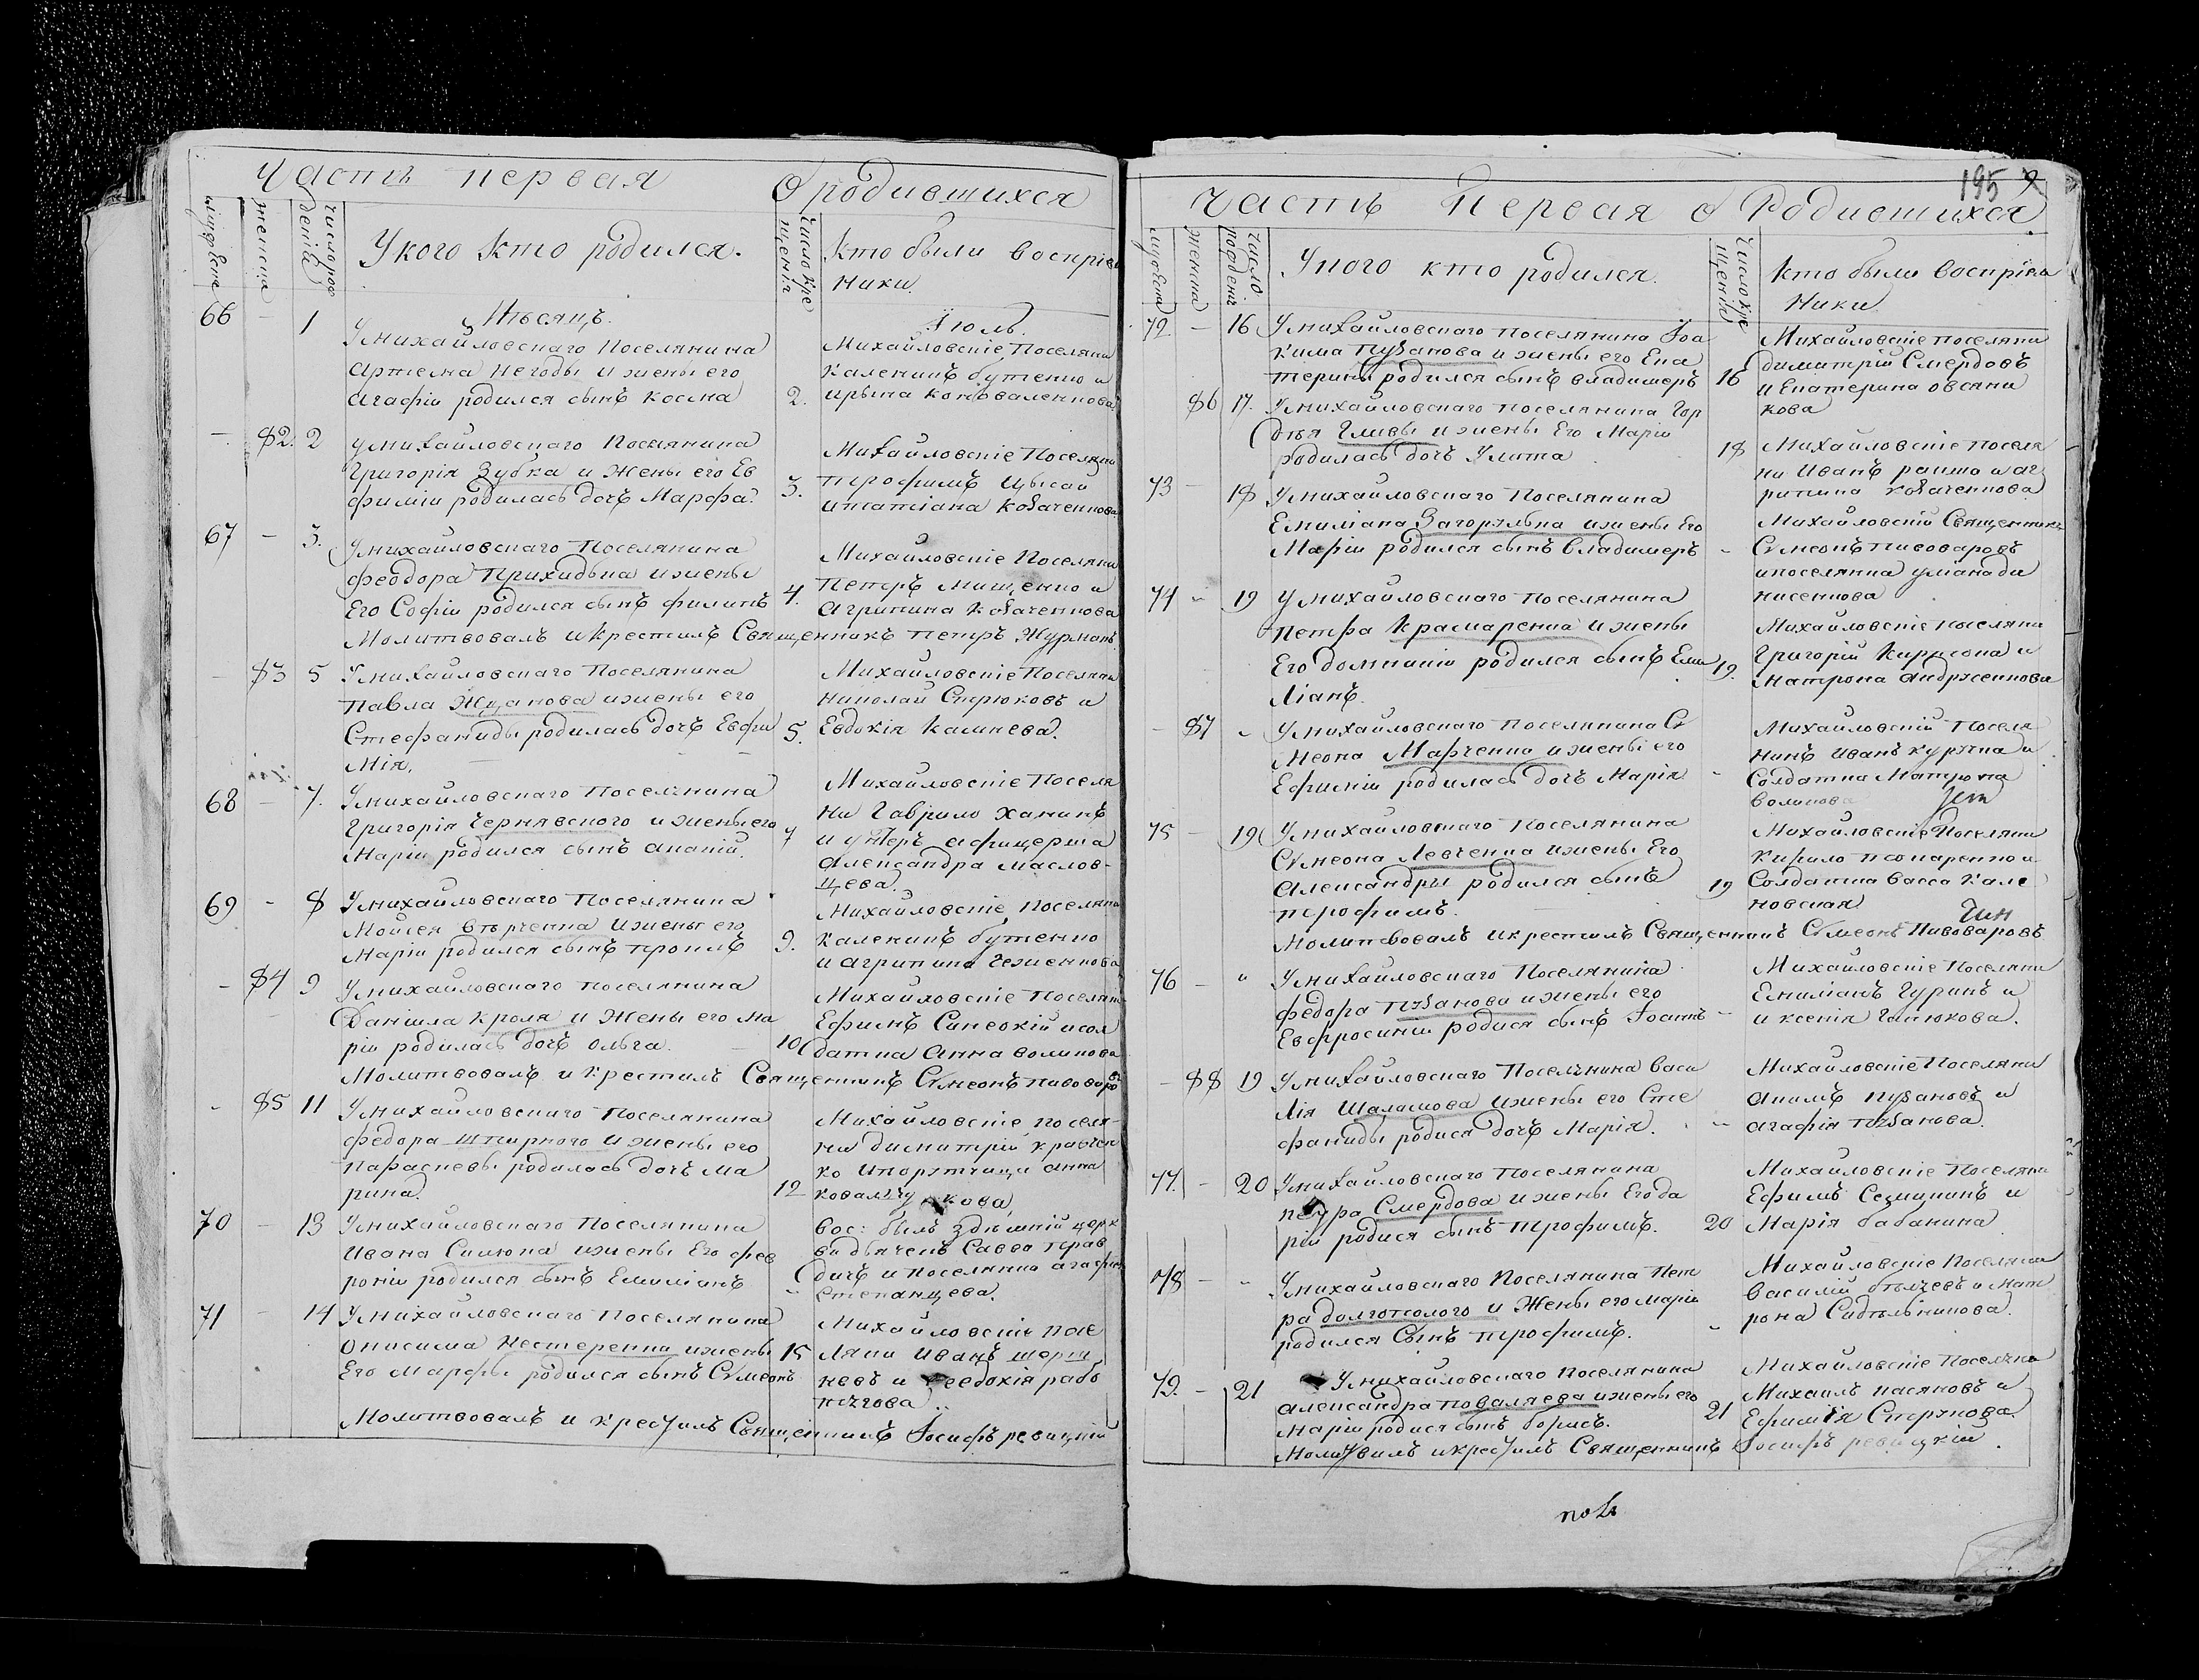 Часть первая О родившихся
мужеска
женска
число рождения
У кого кто родился.
Число крещения
Кто были воспрiем
ники.
Мѣсяцъ.
Iюль.
66 - 1
У михайловскаго Поселянина
Артема Негоды и жены его
Агафiи родился сынъ Косма
2.
Михайловскiе Поселяни
Каленикъ бутенко и
ирына Коноваленкова
- 82. 2
у михайловскаго Поселянина
Григорiя Зубка и Жены его Ев
фимiи родилась дочь Марфа.
3.
Михайловскiе Поселяни
Трофимъ
и татiана Козаченкова
67 - 3.
У михайловскаго Поселянина
феодора Прихидька и жены
Его Софiи родился сынъ филипъ
4.
Михайловскiе Поселяни
Петръ Мищенко и
Агрипина Козаченкова
Молитвовалъ и крестилъ Священникъ Петръ Журманъ
- 83 5
У михайловскаго Поселянина
Павла Жданова и жены его
Стефаниды родилась дочь Евфи
мiя.
5.
Михайловскiе Поселяни
Николай Стрюковъ и
Евдокiя Камнева.
68 - 7.
У михайловскаго Поселянина
Григорiя Чернявского и жены его
Марiи родился сынъ ананiй.
7
Михайловскiе Поселя
ни Гаврило Ханинъ
и унтеръ афицерша
Александра Маслов-
цева.
69 - 8
У михайловскаго Поселянина
Мойсея Втрченка и жены его
Марiи родился сынъ
9.
Михайловскiе Поселяни
Каленикъ бутенко
и агрипина
- 84 9
У михайловскаго поселянина
Данiила Кроля и Жены его Ма
рiи родилась дочь Ольга.
10
Михайловскiе Поселяни
Ефимъ и сол
датка Анна Воликова
Молитвовалъ и Крестилъ Священникъ Сѵмеонъ Пивоваро
- 85 11
У михайловскаго Поселянина
федора шпирного и жены его
Параскевы родилась дочь Ма
рина.
12
Михайловскiе поселя-
ни димитрiй кравчен
ко и порутчица анна
70 - 13
У михайловскаго Поселянина
Ивана Силюка и жены Его фев
ронiи родился сынъ Емилiанъ
"
вос: былъ здѣшнiй церк
ви дьячекъ Савва
и поселянка агафiя
степанцева.
71 - 14
У михайловскаго Поселянина
Онисима Нестеренки и жены
Его Марфы родился сынъ Сѵмеонъ
15
Михайловскiе посе
ляни Иванъ шерш
невъ и Евдокiя рабо
тягова
Молитвовалъ и крестилъ Священникъ Iосифъ ревицкiй
195
Часть Первая о Родившихся.
мужеска
женска
число рожденiя
У кого кто родился.
Число крещенiя
Кто были воспрiем
Ники
72 - 16
У михайловскаго поселянина Iоа
кима Пузанова и жены его Ека
терины родился сынъ владимеръ
16
Михайловскiе поселяни
димитрiй Смердовъ
и Екатерина овсяни
кова
86 17.
У михайловскаго поселянина Гор
дѣя Гливы и жены Его Марiи
родилась дочь Улита
18
Михайловскiе поселя
ни Иванъ и аг
рипина козаченкова
73 - 18
У михайловскаго Поселянина
Емилiана Загорулька и жены Его
Марiи родился сынъ Владимеръ
-
Михайловскiй Священникъ
Сѵмеонъ пивоваровъ
и поселянка улiана
нисенкова
74 " 19
У михайловскаго поселянина
Петра Крамаренка и жены
Его домникiи родился сынъ Еми
лiанъ.
19.
Михайловскiе поселяни
Григорiй Кирысона и
Матрона Андрѫсенкова
- 87 "
У михайловскаго поселянина Сѵ
меона Марченка и жены его
Ефимiи родилась дочь Марiя
"
Михайловскiй Поселя
нинъ Иванъ куручка и
Солдатка Матрона
воликова
75 - 19
У михайловскаго Поселянина
Сѵмеона Левченка и жены Его
Александры родился сынъ
трофимъ.
19
Михайловскiе Поселяни
Кирило псопаренко и
Солдатка Васса Кале
новская
Молитвовалъ и крестилъ Священникъ Сѵмеонъ Пивоваровъ
76 - "
У михайловскаго Поселянина
федора Пузанова и жены его
Евфросинiи родися сынъ Iоаннъ
-
Михайловскiе Поселяни
Емилiанъ Гуринъ и
и ксенiя
- 88 19
У михайловскаго Поселянина Васи
лiя Шаламова и жены его Сте
фаниды родися дочь Марiя.
"
Михайловскiе Поселяни
Акимъ Пузановъ и
агафiя Пузанова.
77. - 20
У михайловскаго Поселянина
петра Смердова и жены Его да
рiи родися сынъ трофимъ.
20
Михайловскiе Поселяни
Ефимъ и
Марiя бабанина
78 - "
У михайловскаго Поселянина Пет
ра долгополого и Жены его марiи
родился Сынъ трофимъ.
"
Михайловскiе Поселяни
василiй бѣлчевъ и мат
рона Сидѣльникова.
79. - 21
У михайловскаго поселянина
александра поваляева и жены его
Марiи родися сынъ борисъ.
21
Михайловскiе Поселяни
Михаилъ касяновъ и
Ефимiя Стрѵкова.
Молитвилъ и крестилъ Священникъ Iосифъ ревицкiй